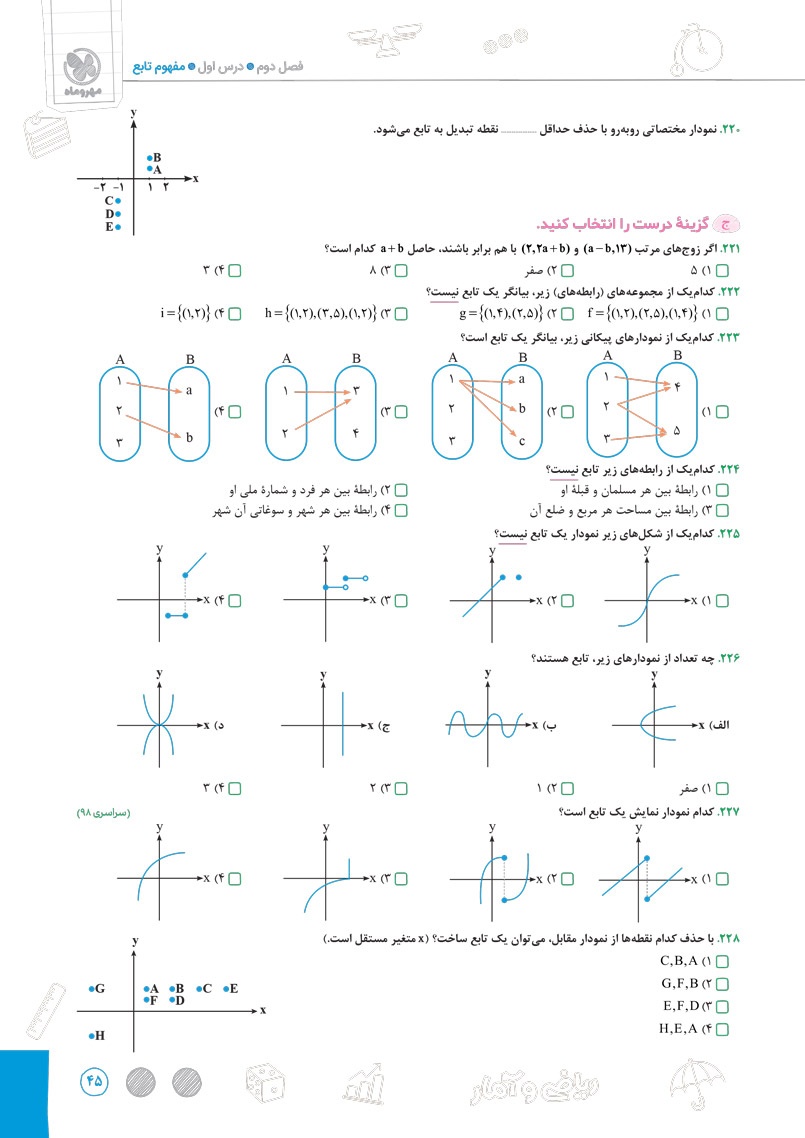 فصل دوم • درس اول • مفهوم تابع
مهروماه
۲۲۰. نمودار مختصاتی روبه‌رو با حذف حداقل ............ نقطه تبدیل به تابع می‌شود.
y
B
A
x
−۲ −۱ ۱ ۲
C
D
E
ج گزینهٔ درست را انتخاب کنید.
۲۲۱. اگر زوج‌های مرتب (a − b, ۱۳) و (۲, ۲a + b) با هم برابر باشند، حاصل a + b کدام است؟
۱) ۵ ۲) صفر ۳) ۸ ۴) ۳
۲۲۲. کدام‌یک از مجموعه‌های (رابطه‌های) زیر، بیانگر یک تابع نیست؟
۱) f = {(۱,۲),(۲,۵),(۱,۴)} ۲) g = {(۱,۴),(۲,۵)} ۳) h = {(۱,۲),(۳,۵),(۱,۲)} ۴) i = {(۱,۲)}
۲۲۳. کدام‌یک از نمودارهای پیکانی زیر، بیانگر یک تابع است؟
A B A B A B A B
۱) ۱ ۲ ۳ ۴ ۵
۲) ۱ ۲ ۳ a b c
۳) ۱ ۲ ۳ ۴
۴) ۱ ۲ ۳ a b
۲۲۴. کدام‌یک از رابطه‌های زیر تابع نیست؟
۱) رابطهٔ بین هر مسلمان و قبلهٔ او ۲) رابطهٔ بین هر فرد و شمارهٔ ملی او
۳) رابطهٔ بین مساحت هر مربع و ضلع آن ۴) رابطهٔ بین هر شهر و سوغاتی آن شهر
۲۲۵. کدام‌یک از شکل‌های زیر نمودار یک تابع نیست؟
y y y y
۱) x ۲) x ۳) x ۴) x
۲۲۶. چه تعداد از نمودارهای زیر، تابع هستند؟
y y y y
الف) x ب) x ج) x د) x
۱) صفر ۲) ۱ ۳) ۲ ۴) ۳
۲۲۷. کدام نمودار نمایش یک تابع است؟ (سراسری ۹۸)
y y y y
۱) x ۲) x ۳) x ۴) x
۲۲۸. با حذف کدام نقطه‌ها از نمودار مقابل، می‌توان یک تابع ساخت؟ (x متغیر مستقل است.)
۱) C , B , A
۲) G , F , B
۳) E , F , D
۴) H , E , A
y
G A B C E
F D
x
H
۴۵
ریاضی و آمار